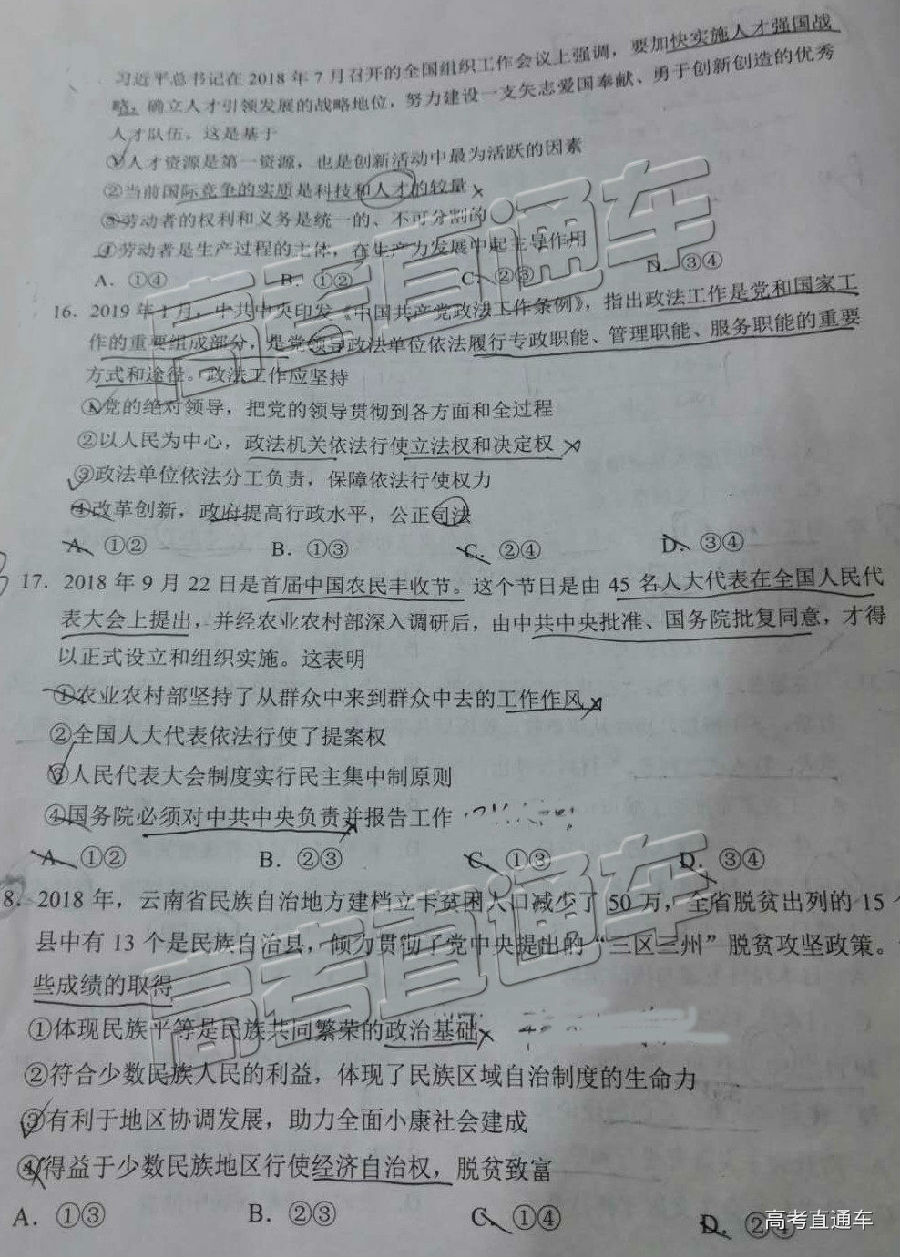 习近平总书记在 2018 年 7 月召开的全国组织工作会议上强调，要加快实施人才强国战
略，确立人才引领发展的战略地位，努力建设一支矢志爱国奉献、勇于创新创造的优秀
人才队伍。这是基于
①人才资源是第一资源，也是创新活动中最为活跃的因素
②当前国际竞争的实质是科技和人才的较量
③劳动者的权利和义务是统一的、不可分割的
④劳动者是生产过程的主体，在生产力发展中起主导作用
A．①④ B．①② C．②③ D．③④
16．2019 年 1 月，中共中央印发《中国共产党政法工作条例》，指出政法工作是党和国家工
作的重要组成部分，是党领导政法单位依法履行专政职能、管理职能、服务职能的重要
方式和途径。政法工作应坚持
①党的绝对领导，把党的领导贯彻到各方面和全过程
②以人民为中心，政法机关依法行使立法权和决定权
③政法单位依法分工负责，保障依法行使权力
④改革创新，政府提高行政水平，公正司法
A．①② B．①③ C．②④ D．③④
17．2018 年 9 月 22 日是首届中国农民丰收节。这个节日是由 45 名人大代表在全国人民代
表大会上提出，并经农业农村部深入调研后，由中共中央批准、国务院批复同意，才得
以正式设立和组织实施。这表明
①农业农村部坚持了从群众中来到群众中去的工作作风
②全国人大代表依法行使了提案权
③人民代表大会制度实行民主集中制原则
④国务院必须对中共中央负责并报告工作
A．①② B．②③ C．①③ D．③④
8．2018 年，云南省民族自治地方建档立卡贫困人口减少了 50 万，全省脱贫出列的 15
县中有 13 个是民族自治县，倾力贯彻了党中央提出的“三区三州”脱贫攻坚政策。
些成绩的取得
①体现民族平等是民族共同繁荣的政治基础
②符合少数民族人民的利益，体现了民族区域自治制度的生命力
③有利于地区协调发展，助力全面小康社会建成
④得益于少数民族地区行使经济自治权，脱贫致富
A．①③ B．②③ C．①④ D．②④
高考直通车
高考直通车
高考直通车